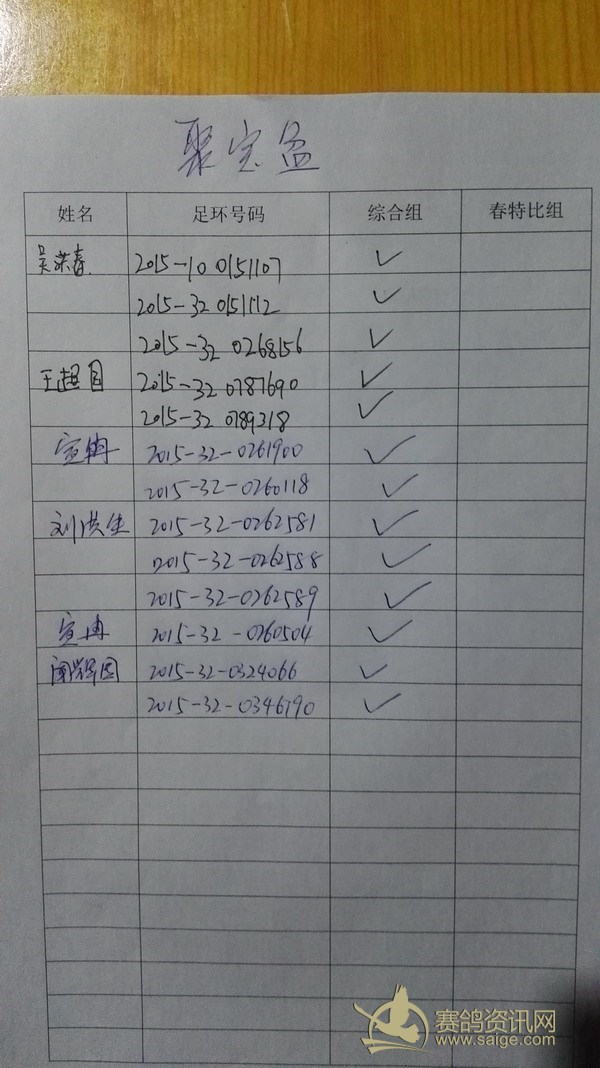 聚宝盆
姓名 足环号码 综合组 春特比组
吴荣春 2015-10 0151107 ✓
2015-32 0151112 ✓
2015-32 0268156 ✓
王超国 2015-32 0787690 ✓
2015-32 0789318 ✓
宣冉 2015-32-0261900 ✓
2015-32-0260118 ✓
刘洪生 2015-32-0262581 ✓
2015-32-0262588 ✓
2015-32-0262589 ✓
宣冉 2015-32-0260504 ✓
2015-32-0324066 ✓
2015-32-0346790 ✓
赛鸽资讯网
www.saige.com